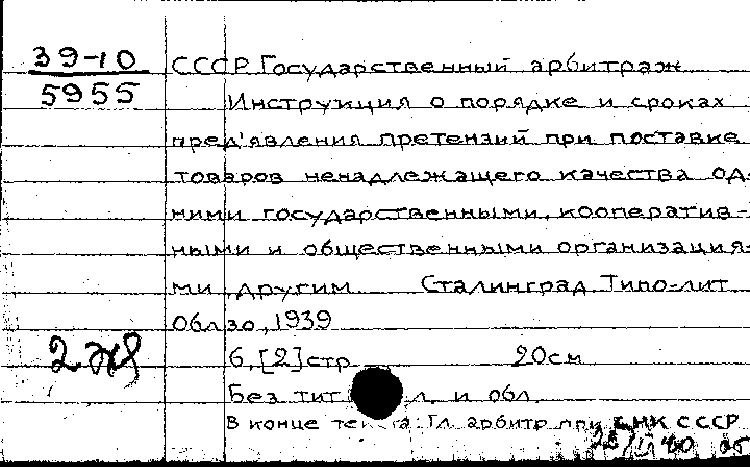 39-10
5955
СССР Государственный арбитраж
Инструкция о порядке и сроках
пред'явления претензий при поставке
товаров ненадлежащего качества од-
ними государственными, кооператив-
ными и общественными организация-
ми, другим Сталинград Типо-лит
Облзо, 1939
6,[2] стр 20см
Без тит л. и обл.
В конце текста: Гл арбитр при СНК СССР